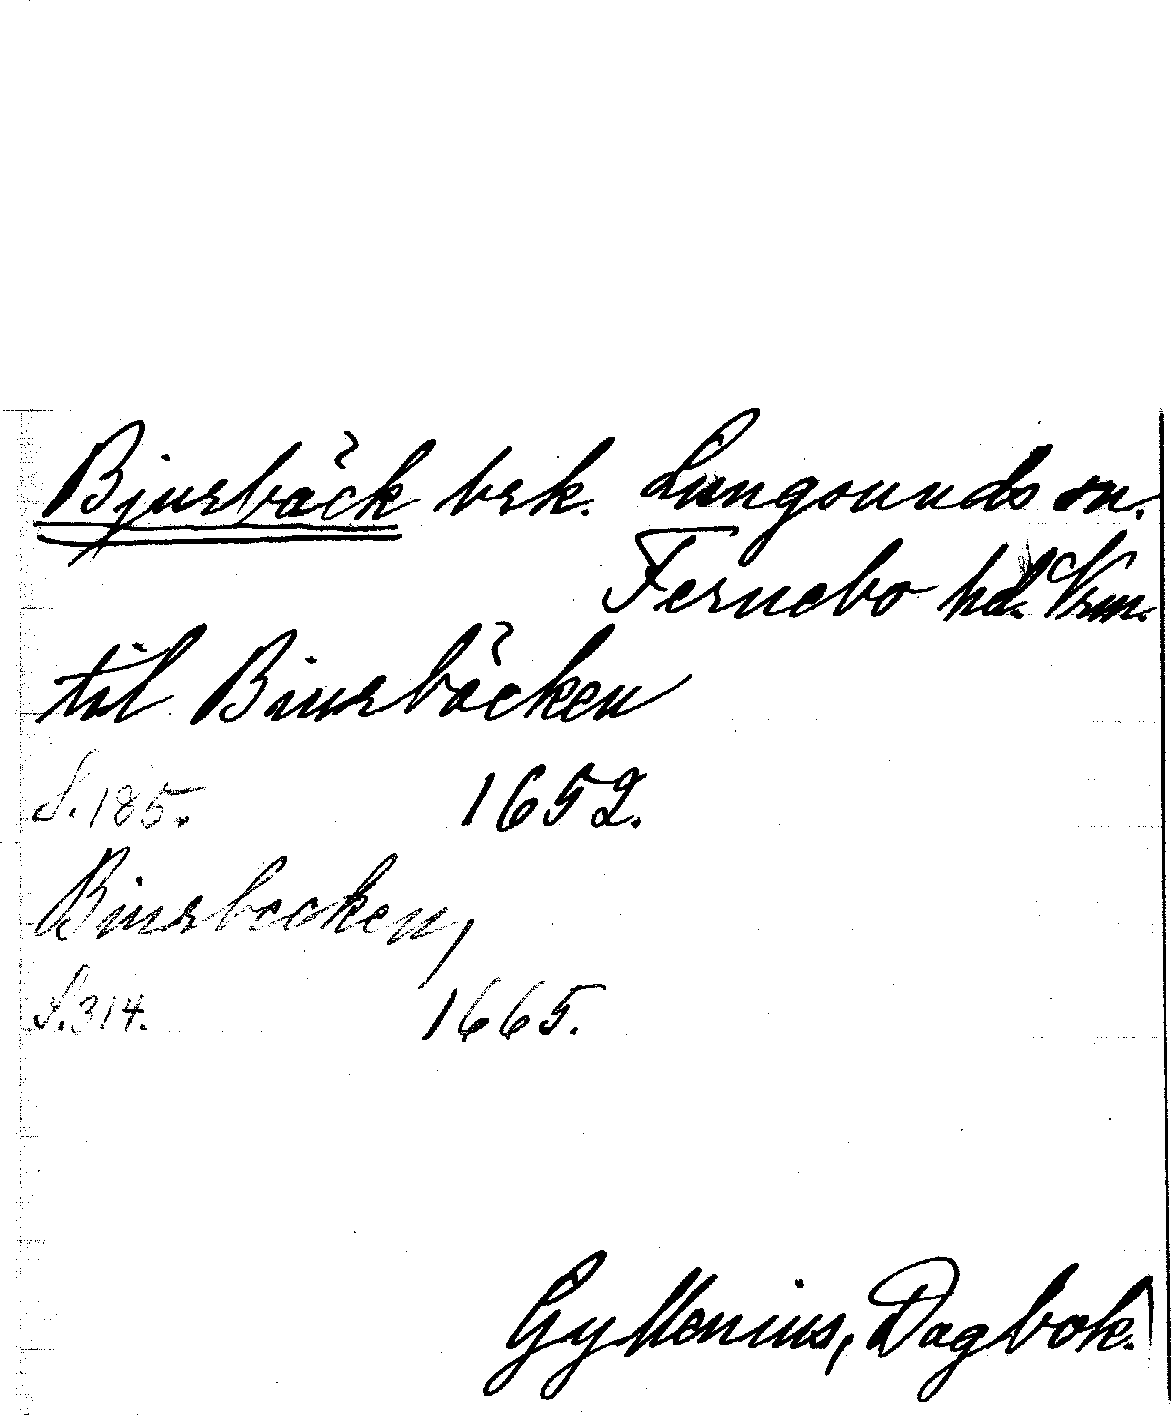 Bjurbäck brk. Lungsunds sn.
Fernebo hd. Vrm.
til Biurbäcken
S. 185. 1652.
Biurbecken,
S. 314. 1665.
Gyllenius, Dagbok.